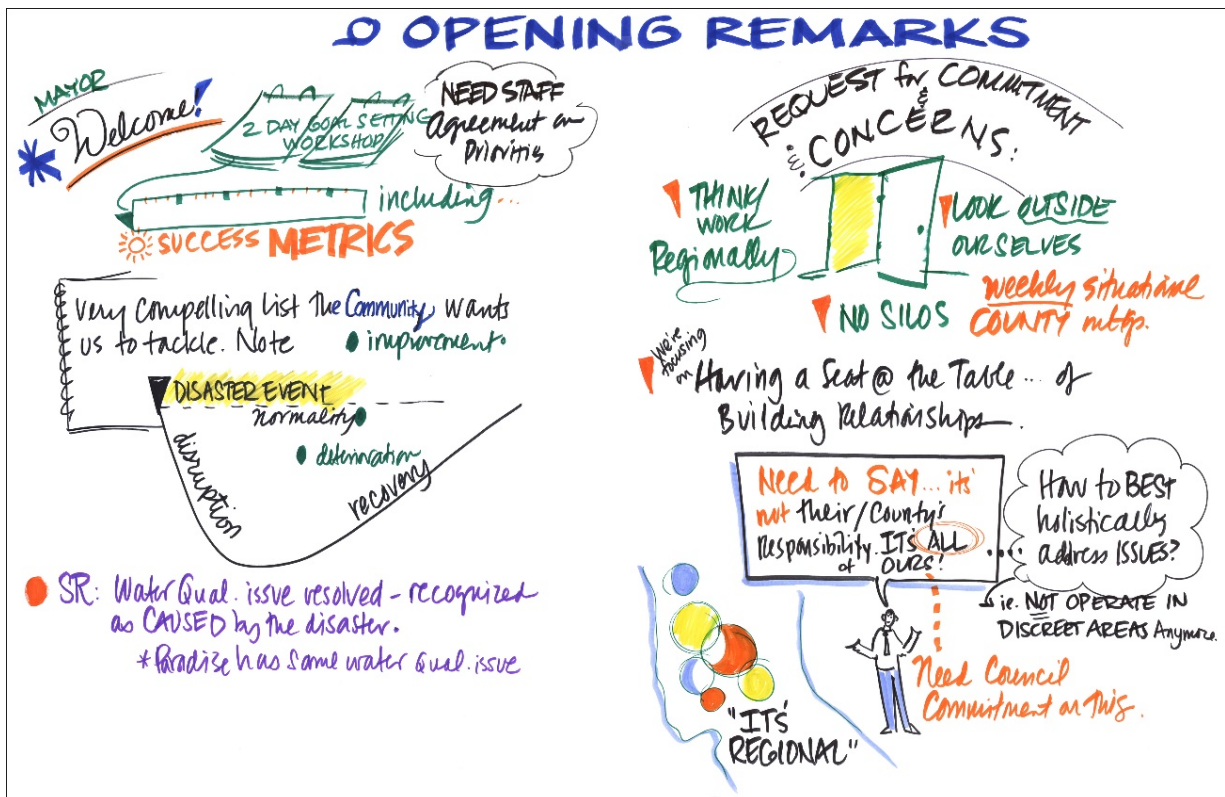 OPENING REMARKS
MAYOR
Welcome!
2 DAY GOAL SETTING
WORKSHOP
NEED STAFF
Agreement on
Priorities
including...
SUCCESS METRICS
Very compelling List The Community wants
us to tackle. Note
• improvement.
DISASTER EVENT
normality
• deterioration
disruption
recovery
SR: Water Qual. issue resolved - recognized
as CAUSED by the disaster.
* Paradize has same water Qual. issue
REQUEST for COMMITMENT
&
CONCERNS:
THINK/
WORK
Regionally
LOOK OUTSIDE
OURSELVES
NO SILOS
weekly situational
COUNTY mtgs.
We're
focusing
on
Having a Seat @ the Table ... of
Building Relationships.
Need to SAY... its'
not their/County's
Responsibility. IT'S ALL
of OURS!
...
How to BEST
holistically
address ISSUES?
ie. NOT OPERATE IN
DISCREET AREAS Anymore.
Need Council
Commitment on This.
"ITS'
REGIONAL"